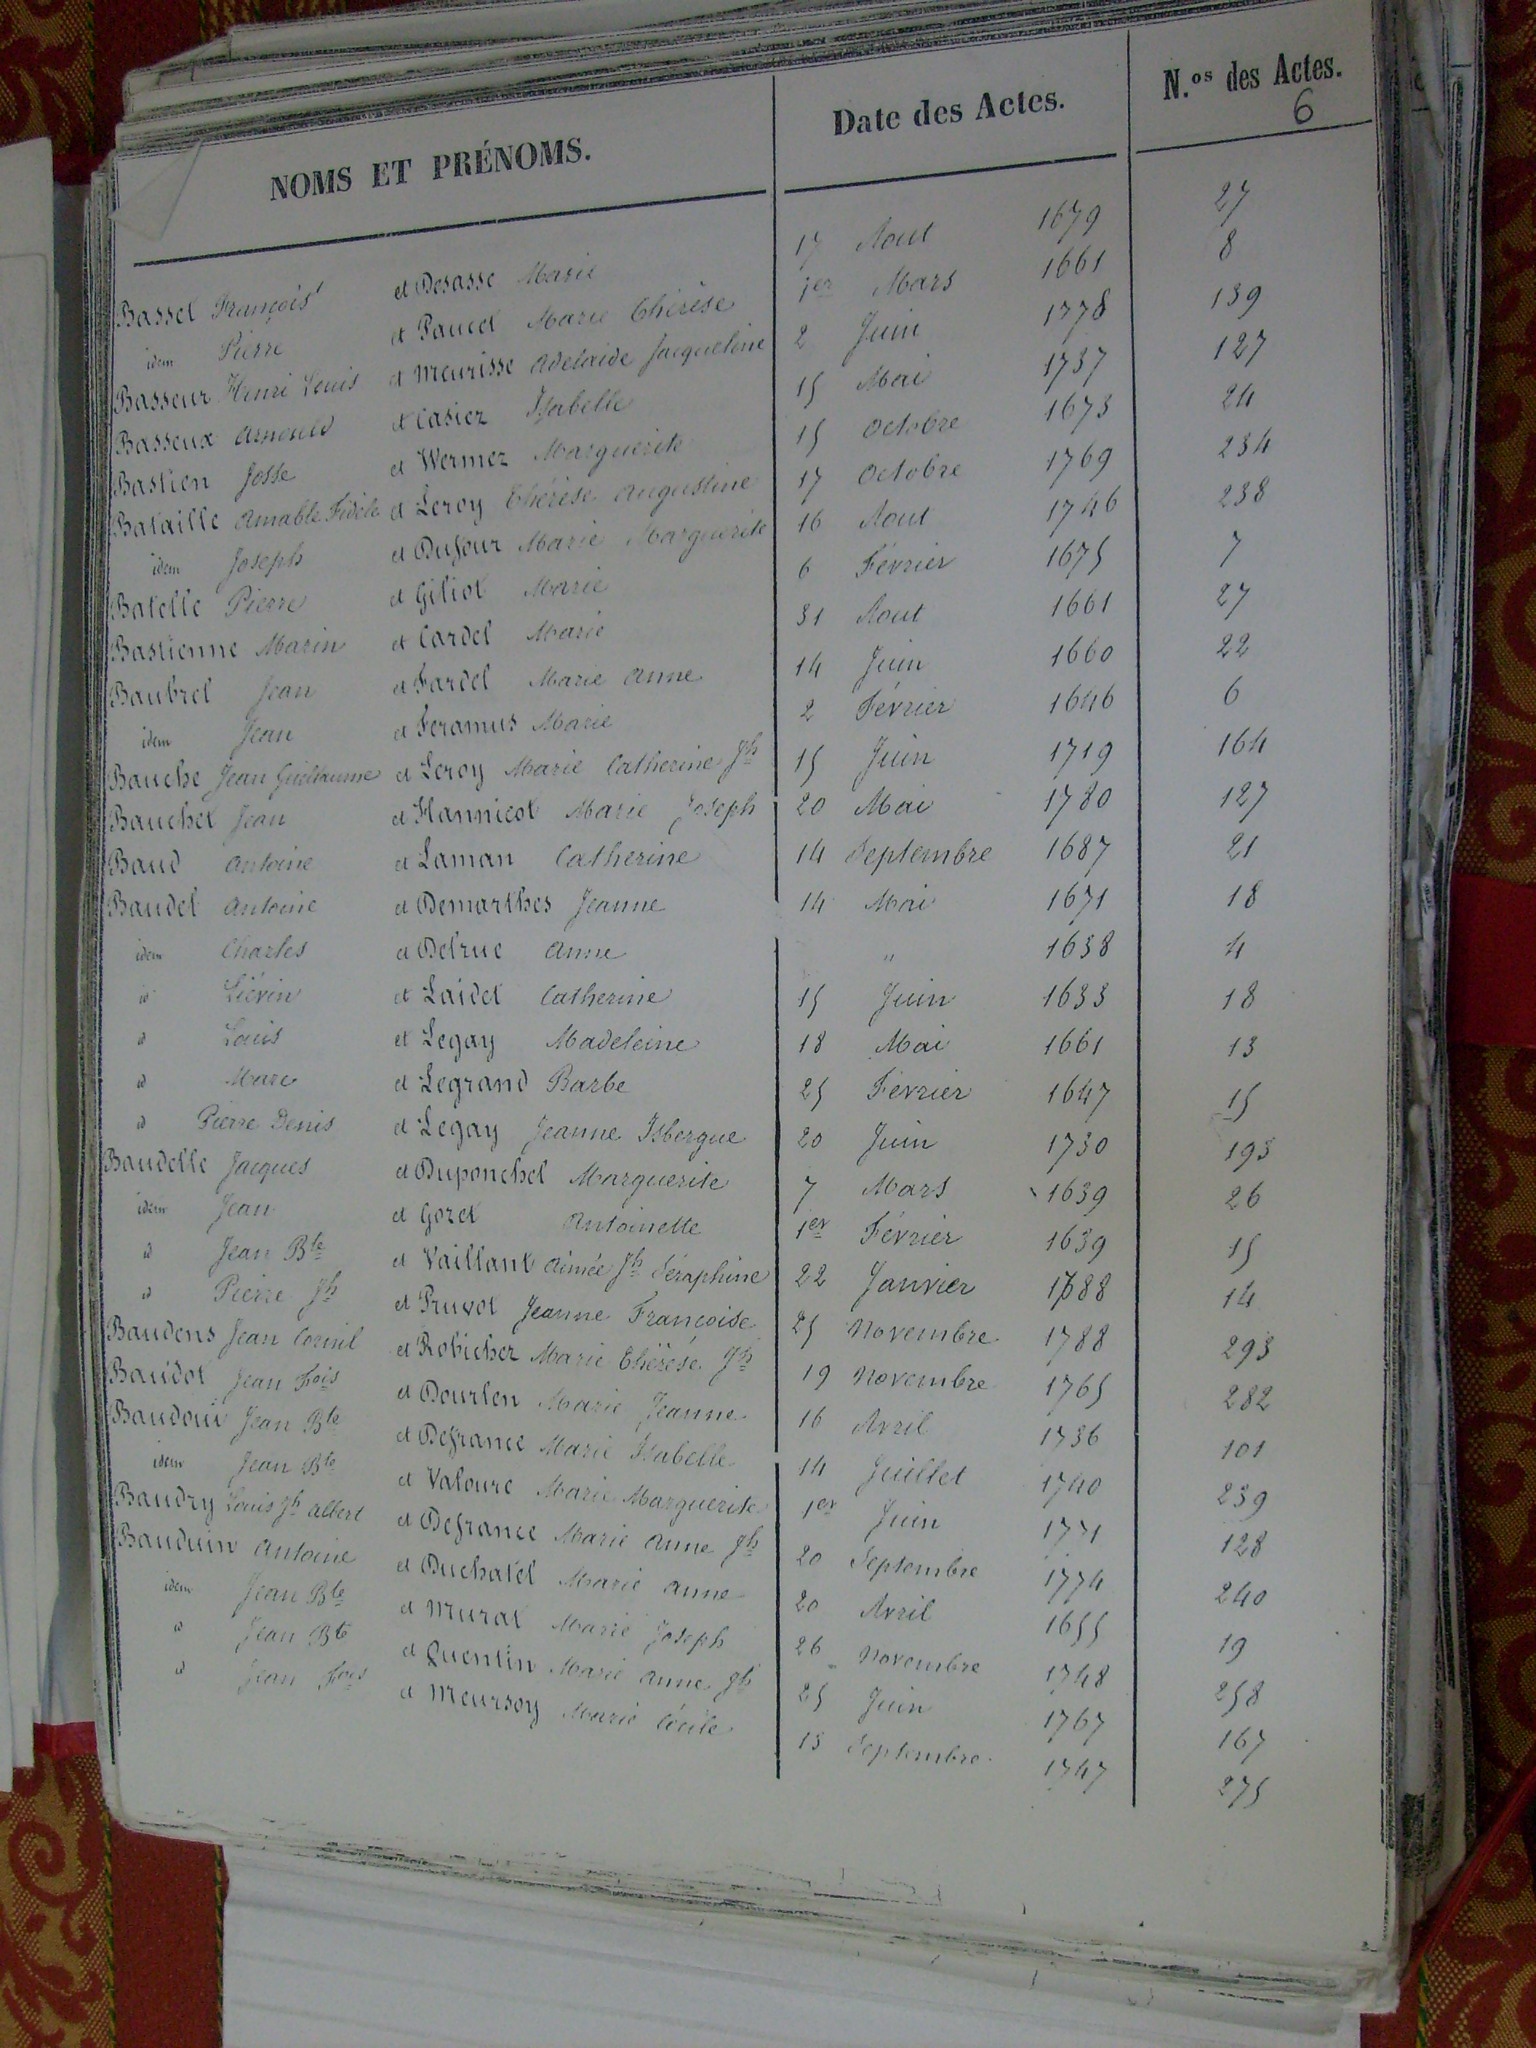 NOMS ET PRÉNOMS. Date des Actes. N.os des Actes.
6
Basset François et Desasse Marie 17 Aout 1679 27
idem Pierre et Paucet Marie Thérèse 1er Mars 1661 8
Basseur Henri Louis et Meurisse Adelaide Jacqueline 2 Juin 1778 139
Basseux Arnould et Casiez Isabelle 15 Mai 1737 127
Bastien Josse et Wermez Marguerite 15 Octobre 1673 24
Bataille Amable Fidèle et Leroy Thérèse Augustine 17 Octobre 1769 234
idem Joseph et Dufour Marie Marguerite 16 Aout 1746 238
Batelle Pierre et Giliot Marie 6 Février 1675 7
Bastienne Marin et Cardel Marie 31 Aout 1661 27
Baubrel Jean et Fardel Marie Anne 14 Juin 1660 22
idem Jean et Feramus Marie 2 Février 1646 6
Bauche Jean Guillaume et Leroy Marie Catherine Jh 15 Juin 1719 164
Bauchet Jean et Hannicot Marie Joseph 20 Mai 1780 127
Baud Antoine et Laman Catherine 14 Septembre 1687 21
Baudel Antoine et Demarthes Jeanne 14 Mai 1671 18
idem Charles et Delrue Anne " 1638 4
id Liévin et Laidet Catherine 15 Juin 1633 18
id Louis et Legay Madeleine 18 Mai 1661 13
id Marc et Legrand Barbe 25 Février 1647 15
id Pierre Denis et Legay Jeanne Isbergue 20 Juin 1730 193
Baudelle Jacques et Duponchel Marguerite 7 Mars 1639 26
idem Jean et Gozet Antoinette 1er Février 1639 15
id Jean Bte et Vaillant Aimée Jh Séraphine 22 Janvier 1688 14
id Pierre Jh et Pruvot Jeanne Françoise 25 Novembre 1788 293
Baudens Jean Cornil et Robichez Marie Thérèse Jh 19 Novembre 1765 282
Baudot Jean Fois et Dourlen Marie Jeanne 16 Avril 1736 101
Baudoui Jean Bte et Defrance Marie Isabelle 14 Juillet 1740 239
idem Jean Bte et Valoure Marie Marguerite 1er Juin 1771 128
Baudry Louis Jh Albert et Defrance Marie Anne Jh 20 Septembre 1774 240
Bauduin Antoine et Duchatel Marie Anne 20 Avril 1655 19
idem Jean Bte et Murat Marie Joseph 26 Novembre 1748 258
id Jean Bte et Quentin Marie Anne Jh 25 Juin 1767 167
id Jean Fois et Meursoy Marie Cécile 13 Septembre 1747 275